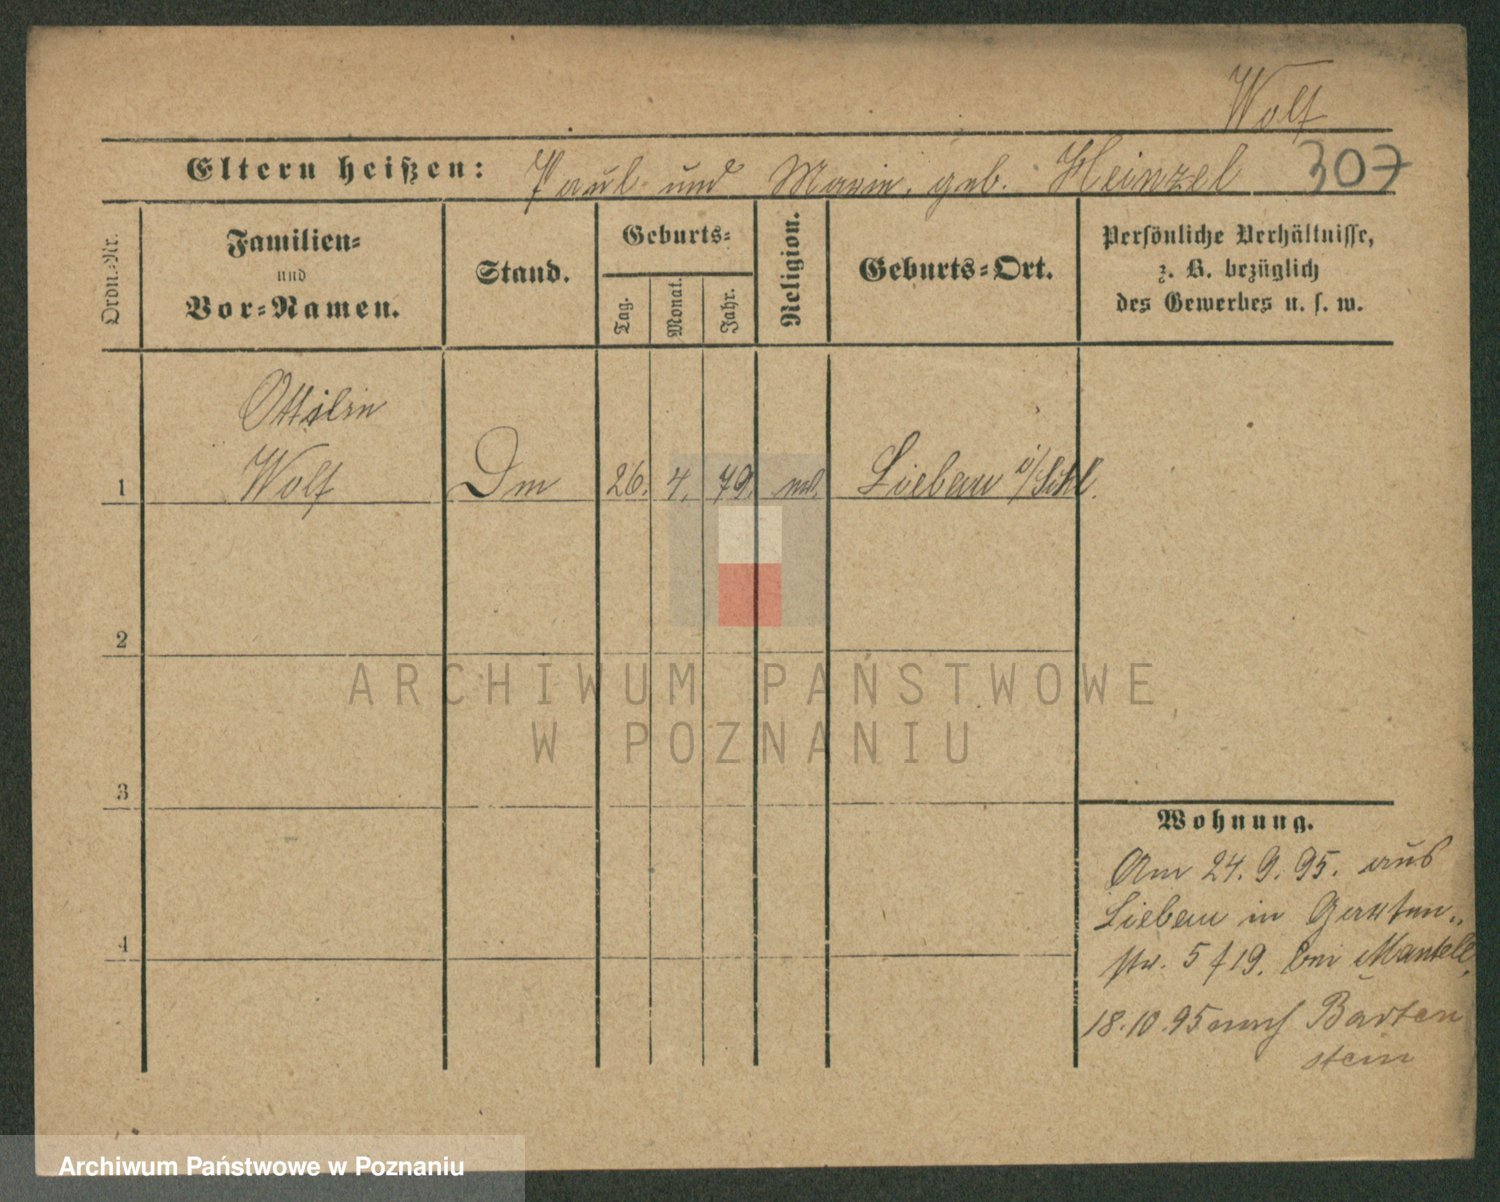 Wolf
Eltern heißen: Paul und Marie, geb. Heinzel 307
Ordn.-Nr.
Familien-
und
Vor-Namen.
Stand.
Geburts-
Tag.
Monat.
Jahr.
Religion.
Geburts-Ort.
Persönliche Verhältnisse,
z. B. bezüglich
des Gewerbes u. s. w.
Ottilie
1 Wolf Dm 26. 4. 79. Liebau i/Schl.
2
3
4
Wohnung.
Am 24.9.95. aus
Liebau in Garten-
str. 5 f 19. bei Mantell,
18.10.95 nach Barten
stein
ARCHIWUM PAŃSTWOWE
W POZNANIU
Archiwum Państwowe w Poznaniu